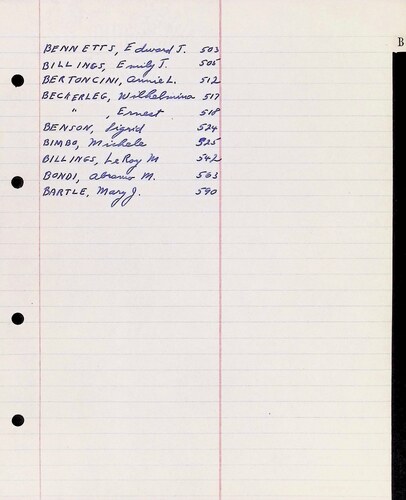 B
BENNETTS, Edward J. 503
BILLINGS, Emily J. 505
BERTONCINI, Annie L. 512
BECKERLEG, Wilhelmina 517
" , Ernest 518
BENSON, Sigrid 524
BIMBO, Michele 525
BILLINGS, LeRoy M 542
BONDI, Abramo M. 563
BARTLE, Mary J. 590